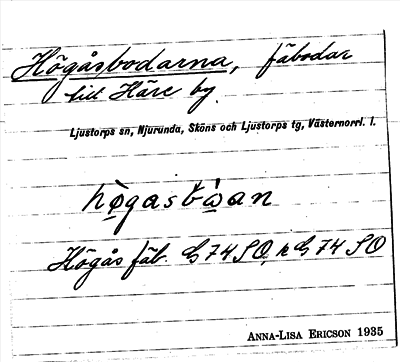 Högåsbodarna, fäbodar
till Häre by.
Ljustorps sn, Njurunda, Sköns och Ljustorps tg, Västernorrl. l.
hø̀gasbẁan
Högås fäb. G 74 SO, k G 74 SO
ANNA-LISA ERICSON 1935